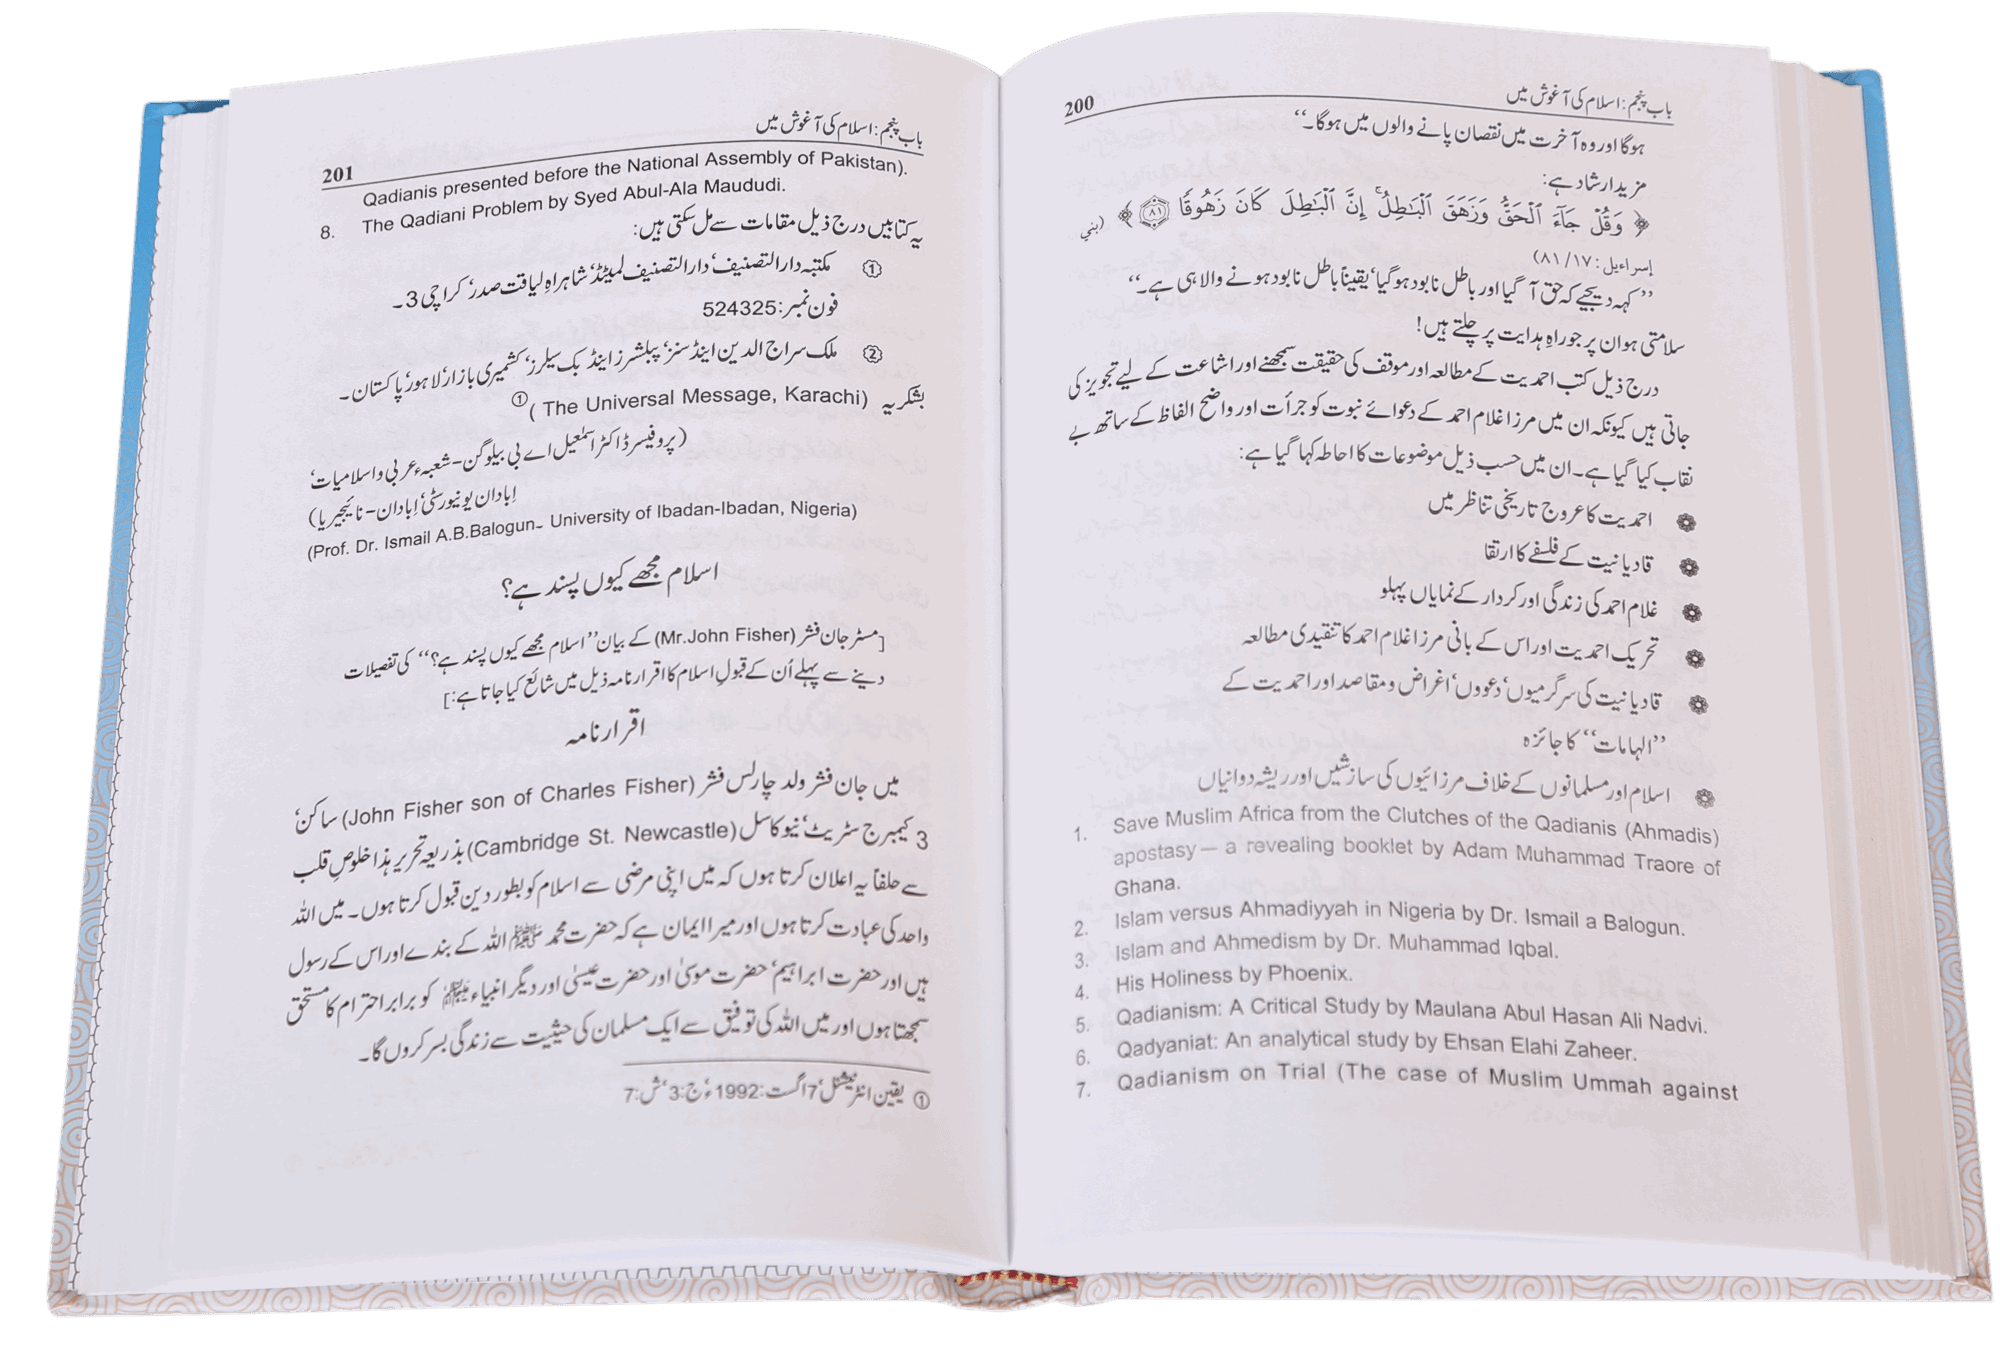 باب پنجم: اسلام کی آغوش میں 200
ہوگا اور وہ آخرت میں نقصان پانے والوں میں ہوگا۔‘‘
مزید ارشاد ہے:
﴿ وَقُلْ جَآءَ ٱلْحَقُّ وَزَهَقَ ٱلْبَـٰطِلُ ۚ إِنَّ ٱلْبَـٰطِلَ كَانَ زَهُوقًا ۝٨١ ﴾ (بني
إسراءيل: ١٧/ ٨١)
’’کہہ دیجیے کہ حق آ گیا اور باطل نابود ہوگیا‘ یقیناً باطل نابود ہونے والا ہی ہے۔‘‘
سلامتی ہو ان پر جو راہِ ہدایت پر چلتے ہیں!
درج ذیل کتب احمدیت کے مطالعہ اور موقف کی حقیقت سمجھنے اور اشاعت کے لیے تجویز کی
جاتی ہیں کیونکہ ان میں مرزا غلام احمد کے دعوائے نبوت کو جرأت اور واضح الفاظ کے ساتھ بے
نقاب کیا گیا ہے۔ ان میں حسب ذیل موضوعات کا احاطہ کہا گیا ہے:
احمدیت کا عروج تاریخی تناظر میں
قادیانیت کے فلسفے کا ارتقا
غلام احمد کی زندگی اور کردار کے نمایاں پہلو
تحریک احمدیت اور اس کے بانی مرزا غلام احمد کا تنقیدی مطالعہ
قادیانیت کی سرگرمیوں‘ دعووں‘ اغراض و مقاصد اور احمدیت کے
’’الہامات‘‘ کا جائزہ
اسلام اور مسلمانوں کے خلاف مرزائیوں کی سازشیں اور ریشہ دوانیاں
1. Save Muslim Africa from the Clutches of the Qadianis (Ahmadis)
apostasy — a revealing booklet by Adam Muhammad Traore of
Ghana.
2. Islam versus Ahmadiyyah in Nigeria by Dr. Ismail a Balogun.
3. Islam and Ahmedism by Dr. Muhammad Iqbal.
4. His Holiness by Phoenix.
5. Qadianism: A Critical Study by Maulana Abul Hasan Ali Nadvi.
6. Qadyaniat: An analytical study by Ehsan Elahi Zaheer.
7. Qadianism on Trial (The case of Muslim Ummah against
باب پنجم: اسلام کی آغوش میں 201
Qadianis presented before the National Assembly of Pakistan).
8. The Qadiani Problem by Syed Abul-Ala Maududi.
یہ کتابیں درج ذیل مقامات سے مل سکتی ہیں:
① مکتبہ دارالتصنیف‘ دارالتصنیف لمیٹڈ‘ شاہراہِ لیاقت صدر‘ کراچی 3۔
فون نمبر: 524325
② ملک سراج الدین اینڈ سنز‘ پبلشرز اینڈ بک سیلرز‘ کشمیری بازار‘ لاہور‘ پاکستان۔
بشکریہ (The Universal Message, Karachi) ①
(پروفیسر ڈاکٹر اسمٰعیل اے بی بیلوگن- شعبہء عربی و اسلامیات‘
اِبادان یونیورسٹی‘ اِبادان- نائیجیریا)
(Prof. Dr. Ismail A.B.Balogun- University of Ibadan-Ibadan, Nigeria)
اسلام مجھے کیوں پسند ہے؟
[مسٹر جان فشر (Mr.John Fisher) کے بیان ’’اسلام مجھے کیوں پسند ہے؟‘‘ کی تفصیلات
دینے سے پہلے اُن کے قبولِ اسلام کا اقرار نامہ ذیل میں شائع کیا جاتا ہے:]
اقرار نامہ
میں جان فشر ولد چارلس فشر (John Fisher son of Charles Fisher) ساکن‘
3 کیمبرج سٹریٹ‘ نیو کاسل (Cambridge St. Newcastle) بذریعہ تحریر ہذا خلوصِ قلب
سے حلفاً یہ اعلان کرتا ہوں کہ میں اپنی مرضی سے اسلام کو بطور دین قبول کرتا ہوں۔ میں اللہ
واحد کی عبادت کرتا ہوں اور میرا ایمان ہے کہ حضرت محمد ﷺ اللہ کے بندے اور اس کے رسول
ہیں اور حضرت ابراہیم‘ حضرت موسیٰ اور حضرت عیسیٰ اور دیگر انبیاء کو برابر احترام کا مستحق
سمجھتا ہوں اور میں اللہ کی توفیق سے ایک مسلمان کی حیثیت سے زندگی بسر کروں گا۔
① یقین انٹرنیشنل‘ 7 اگست: 1992ء‘ ج: 3‘ ش: 7